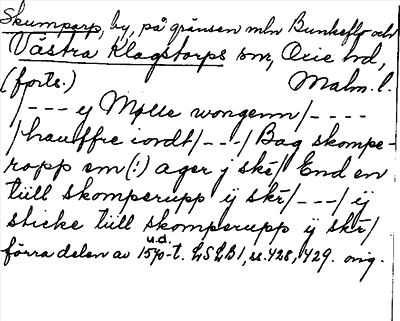 Skumparp, by, på gränsen mln Bunkeflo och
Västra Klagstorps snr, Oxie hd,
(forts.) Malm. l.
/--- ey Mølle wongenn/----
/hauffre iordt/---/Bag skompe-
ropp em(!) ager j skĕ/ End en
tiill skomperupp ÿ skĕ/---/ ÿ
sticke tiill skomperupp ÿ skĕ/
u.d.
förra delen av 1570-t. LSLB1, ss. 428, 429. orig.